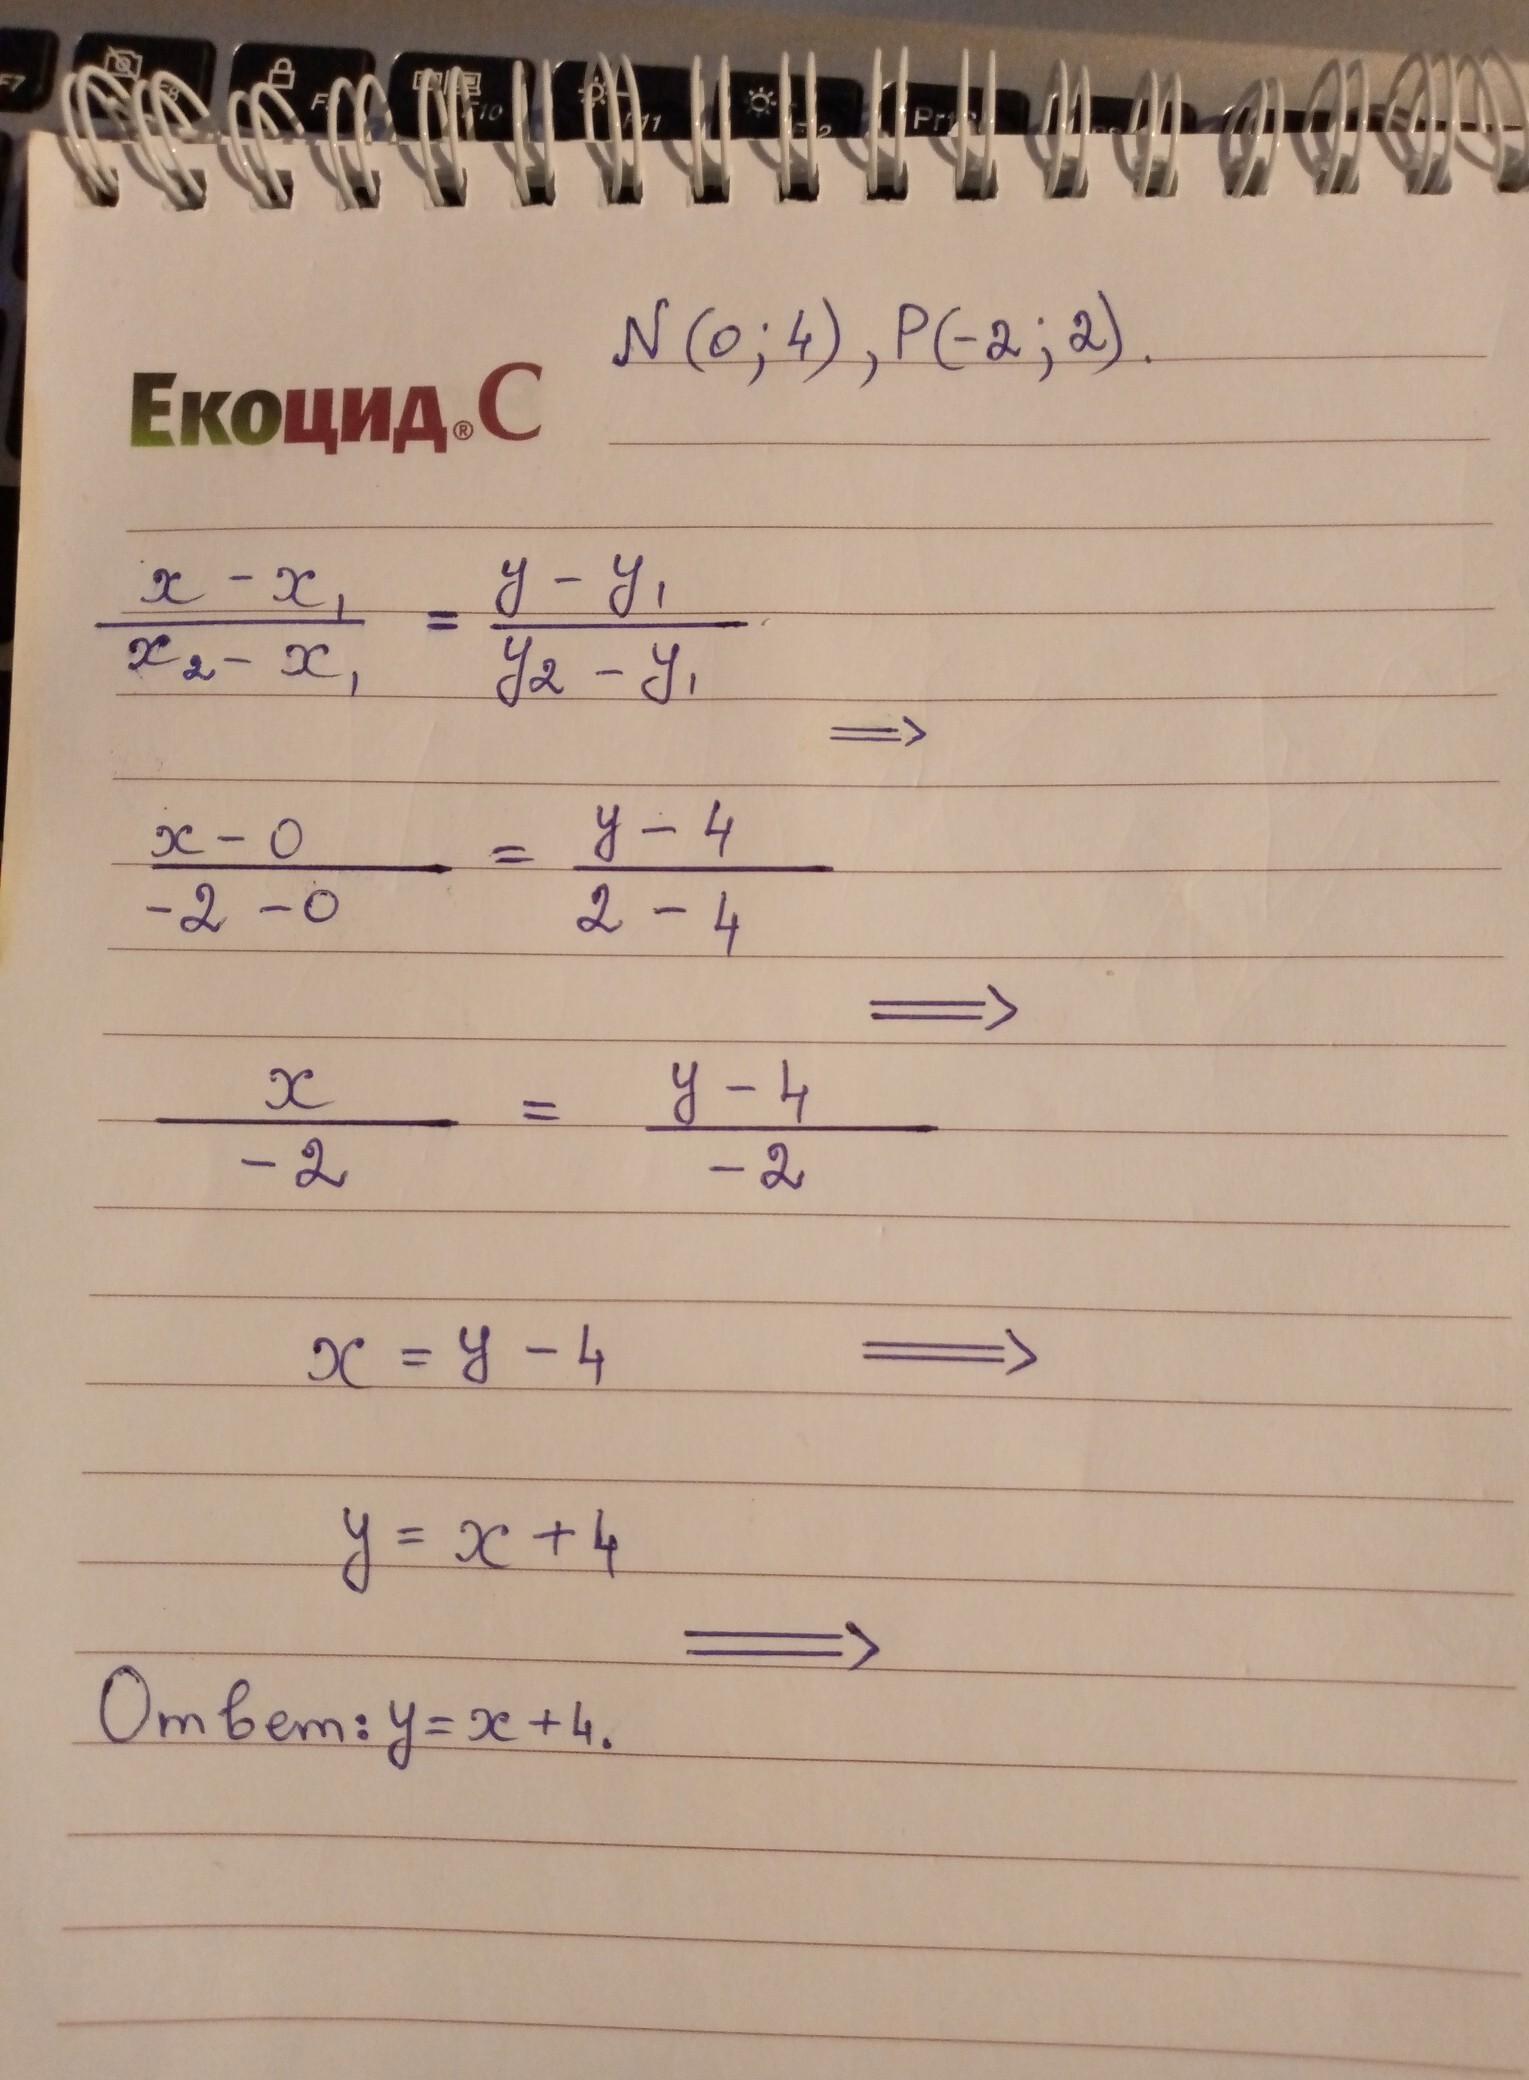 F7 F8 F9 F10 F11 F12
N(0; 4), P(-2; 2).
Екоцид® С
x - x₁ / x₂ - x₁ = y - y₁ / y₂ - y₁
⟹
x - 0 / -2 - 0 = y - 4 / 2 - 4
⟹
x / -2 = y - 4 / -2
x = y - 4 ⟹
y = x + 4
⟹
Ответ: y = x + 4.